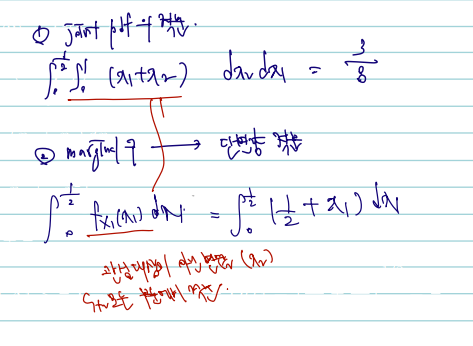 ① joint pdf 적분.
∫₀^{1/2} ∫₀^1 (x₁+x₂) dx₂ dx₁ = 3/8
② marginal → 단변량 적분
∫₀^{1/2} f_{X₁}(x₁) dx₁ = ∫₀^{1/2} (1/2 + x₁) dx₁
관심대상이 아닌 변수 (x₂)